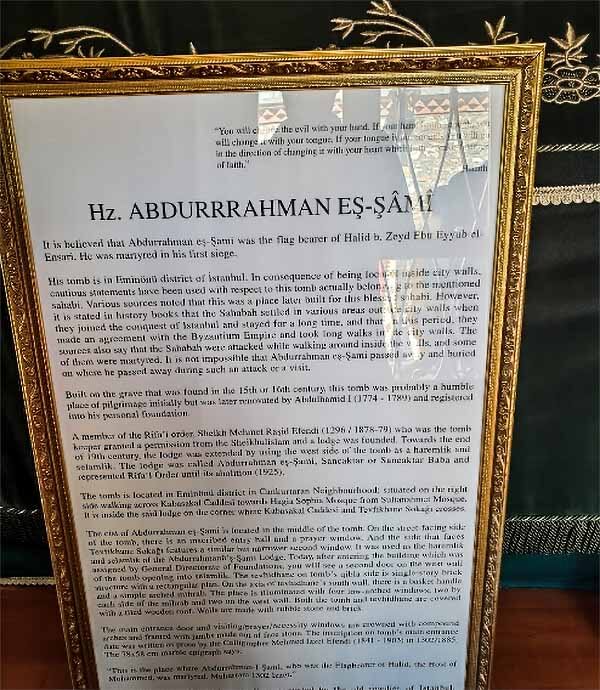 "You will the evil with your hand. If your
will change it with your tongue. If your tongue
in the direction of changing it with your heart
of faith."
Hz. ABDURRRAHMAN EŞ-ŞÂMÎ
It is believed that Abdurrahman eş-Şami was the flag bearer of Halid b. Zeyd Ebu Eyyub el-
Ensari. He was martyred in his first siege.
His tomb is in Eminönü district of Istanbul. In consequence of being inside city walls,
cautious statements have been used with respect to this tomb actually to the mentioned
sahabi. Various sources noted that this was a place later built for this blessed sahabi. However,
it is stated in history books that the Sahabah settled in various areas city walls when
they joined the conquest of Istanbul and stayed for a long time, and that in this period, they
made an agreement with the Byzantium Empire and took long walks in city walls. The
sources also say that the Sahabah were attacked while walking around inside the walls, and some
of them were martyred. It is not impossible that Abdurrahman eş-Şami passed away and buried
on where he passed away during such an attack or a visit.
Built on the grave that was found in the 15th or 16th century, this tomb was probably a humble
place of pilgrimage initially but was later renovated by Abdulhamid I (1774 - 1789) and registered
into his personal foundation.
A member of the Rifa'i order, Sheikh Mehmet Raşid Efendi (1296 / 1878-79) who was the tomb
keeper granted a permission from the Sheikhulislam and a lodge was founded. Towards the end
of 19th century, the lodge was extended by using the west side of the tomb as a haremlik and
selamlik. The lodge was called Abdurrahman eş-Şami, Sancaktar or Sancaktar Baba and
represented Rifa'i Order until its abolition (1925).
The tomb is located in Eminönü district in Cankurtaran Neighbourhood; situated on the right
side walking across Kabasakal Caddesi towards Hagia Sophia Mosque from Sultanahmet Mosque.
It is inside the said lodge on the corner where Kabasakal Caddesi and Tevfikhane Sokağı crosses.
The cist of Abdurrahman eş-Şami is located in the middle of the tomb. On the street facing side
of the tomb, there is an inscribed entry hall and a prayer window. And the side that faces
Tevfikhane Sokağı features a similar but narrower second window. It was used as the haremlik
and selamlik of the Abdurrahman'ş-Şami Lodge. Today, after entering the building which was
assigned by General Directorate of Foundations, you will see a second door on the west wall
of the tomb opening into selamlik. The tevhidhane on tomb's qibla side is single-story brick
structure with a rectangular plan. On the axis of tevhidhane's south wall, there is a basket handle
and a simple arched mihrab. The place is illuminated with four low-arched windows, two by
each side of the mihrab and two on the west wall. Both the tomb and tevhidhane are covered
with a tiled wooden roof. Walls are made with rubble stone and brick.
The main entrance door and visiting/prayer/necessity windows are crowned with compound
arches and framed with jambs made out of face stone. The inscription on tomb's main entrance
date was written as prose by the Calligrapher Mehmed İzzet Efendi (1841 - 1903) in 1302/1885.
The 78x58 cm marble epigraph says:
"This is the place where Abdurrahman-ı Şami, who was the Flagbearer of Halid, the Host of
Muhammed, was martyred. Muharram 1302